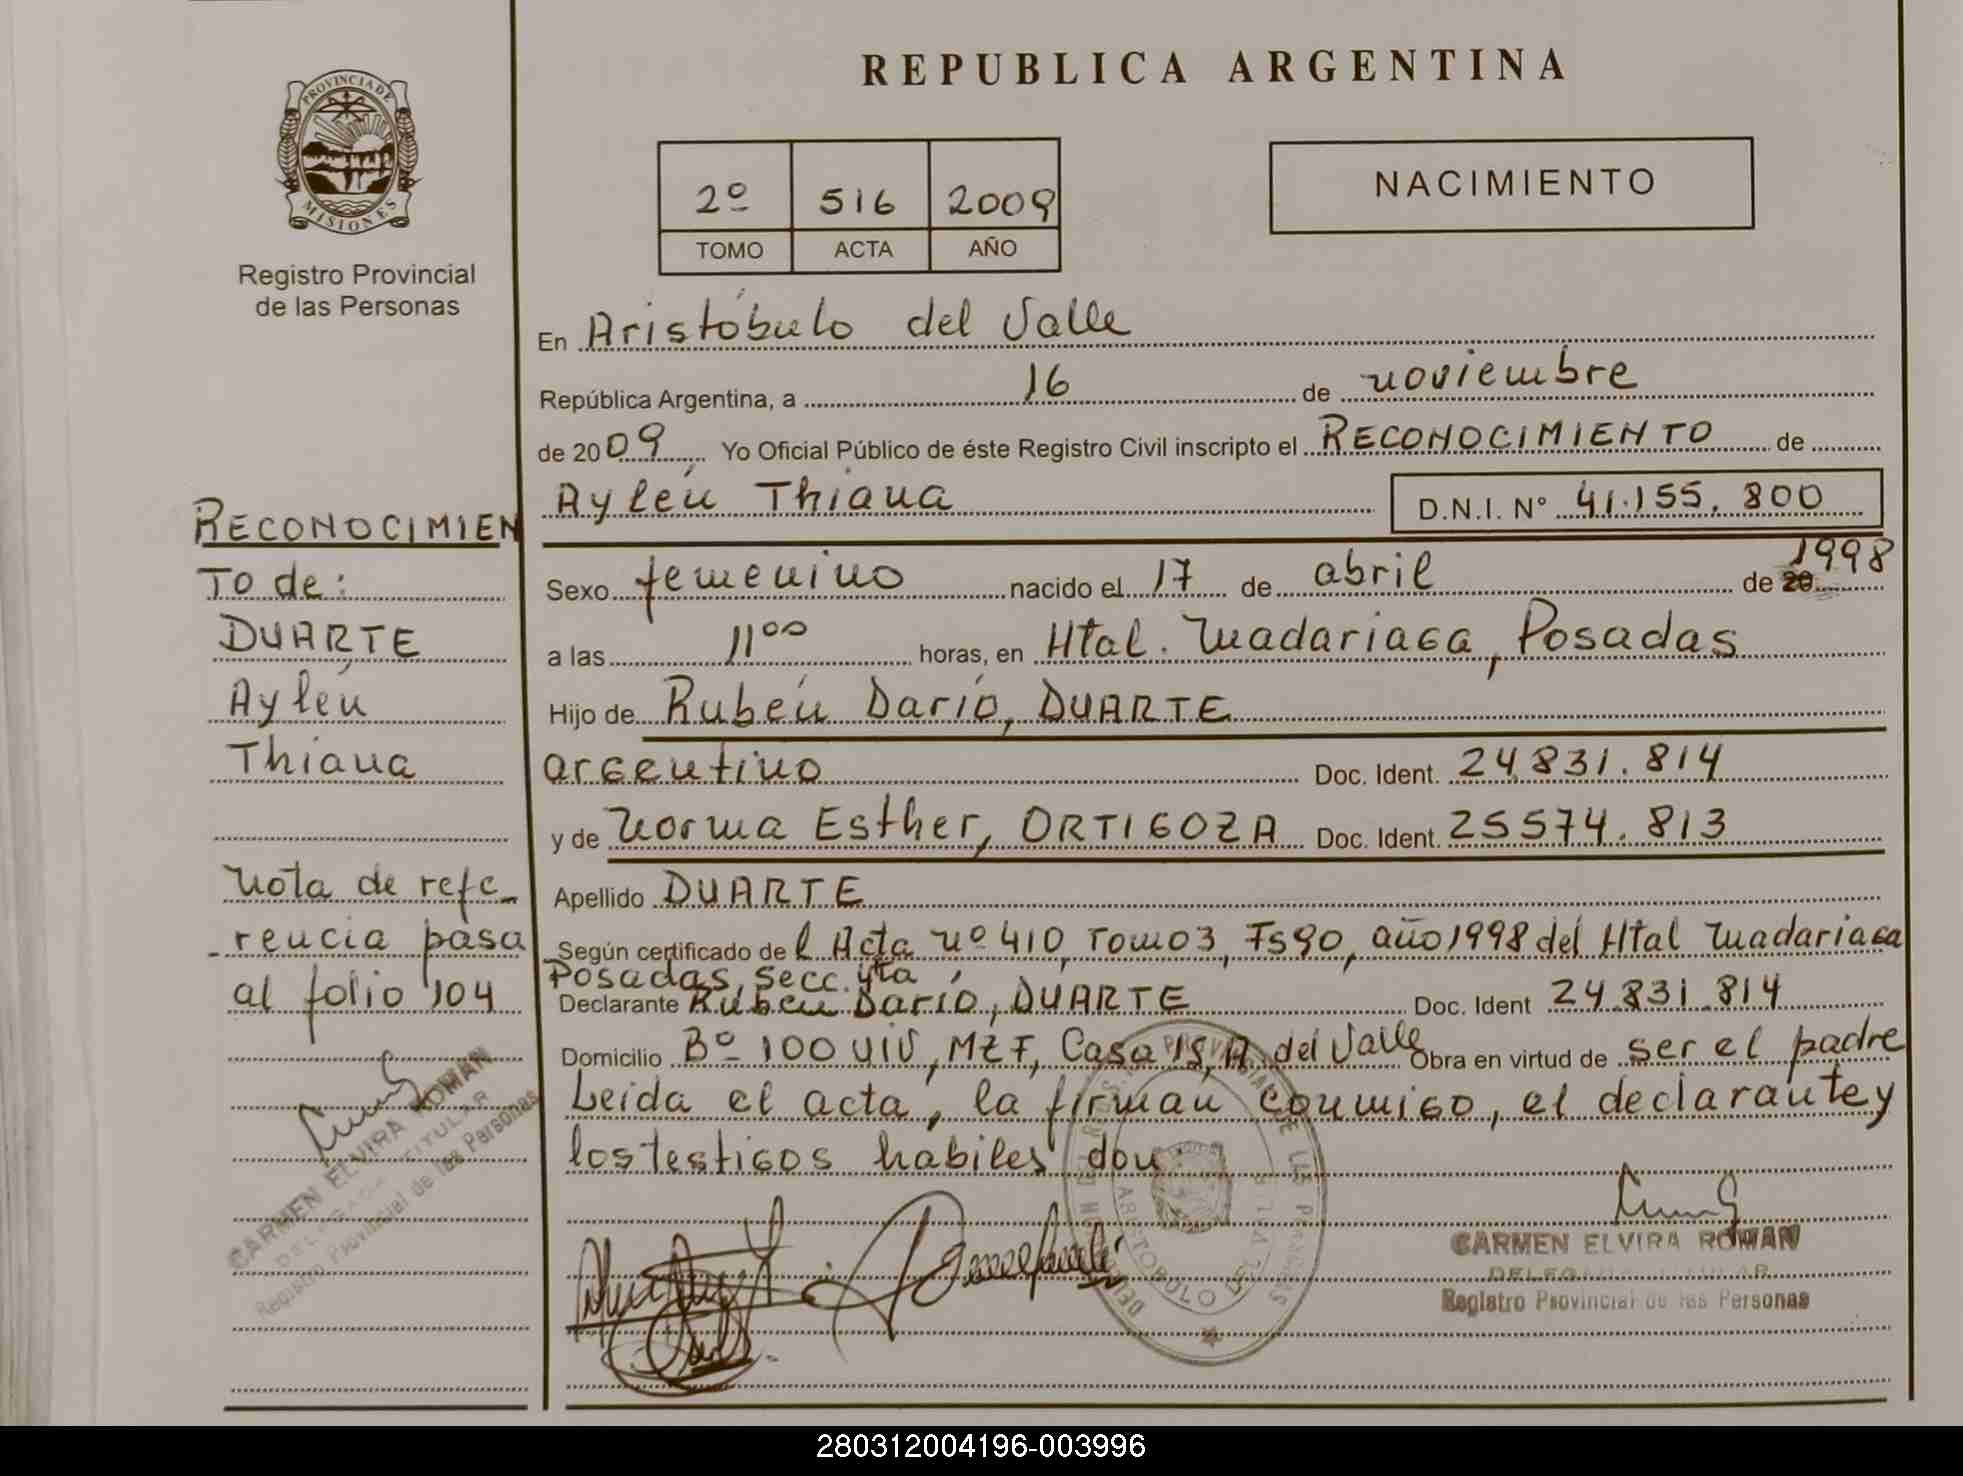 PROVINCIA DE
MISIONES
Registro Provincial
de las Personas
REPUBLICA ARGENTINA
2º 516 2009
TOMO ACTA AÑO
NACIMIENTO
En Aristóbulo del Valle
República Argentina, a 16 de noviembre
de 2009 Yo Oficial Público de éste Registro Civil inscripto el RECONOCIMIENTO de
Aylén Thiana D.N.I. Nº 41.155.800
Sexo femenino nacido el 17 de abril de 20 1998
a las 11 00 horas, en Htal. Madariaga, Posadas
Hijo de Rubén Darío, DUARTE
argentino Doc. Ident. 24.831.814
y de Norma Esther, ORTIGOZA Doc. Ident. 25574.813
Apellido DUARTE
Según certificado de l Acta nº 410, Tomo 3, Fs 90, año 1998 del Htal Madariaga
Posadas, secc. 4ta
Declarante Rubén Darío, DUARTE Doc. Ident 24.831.814
Domicilio Bº 100 viv, MZ F, Casa 15, A. del Valle Obra en virtud de ser el padre
Leida el acta, la firman conmigo, el declarante y
los testigos habiles don
CARMEN ELVIRA ROMAN
DELEGADA TITULAR
Registro Provincial de las Personas
RECONOCIMIEN
TO de:
DUARTE
Aylén
Thiana
Nota de refe_
rencia pasa
al folio 104
CARMEN ELVIRA ROMAN
DELEGADA TITULAR
Registro Provincial de las Personas
280312004196-003996